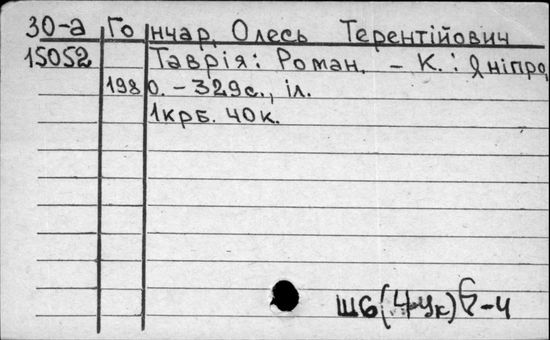 30-а Гончар, Олесь Терентійович
15052 Таврія: Роман. – К.: Дніпро,
1980. – 329с., іл.
1крб. 40к.
Ш6(4Ук)6-4